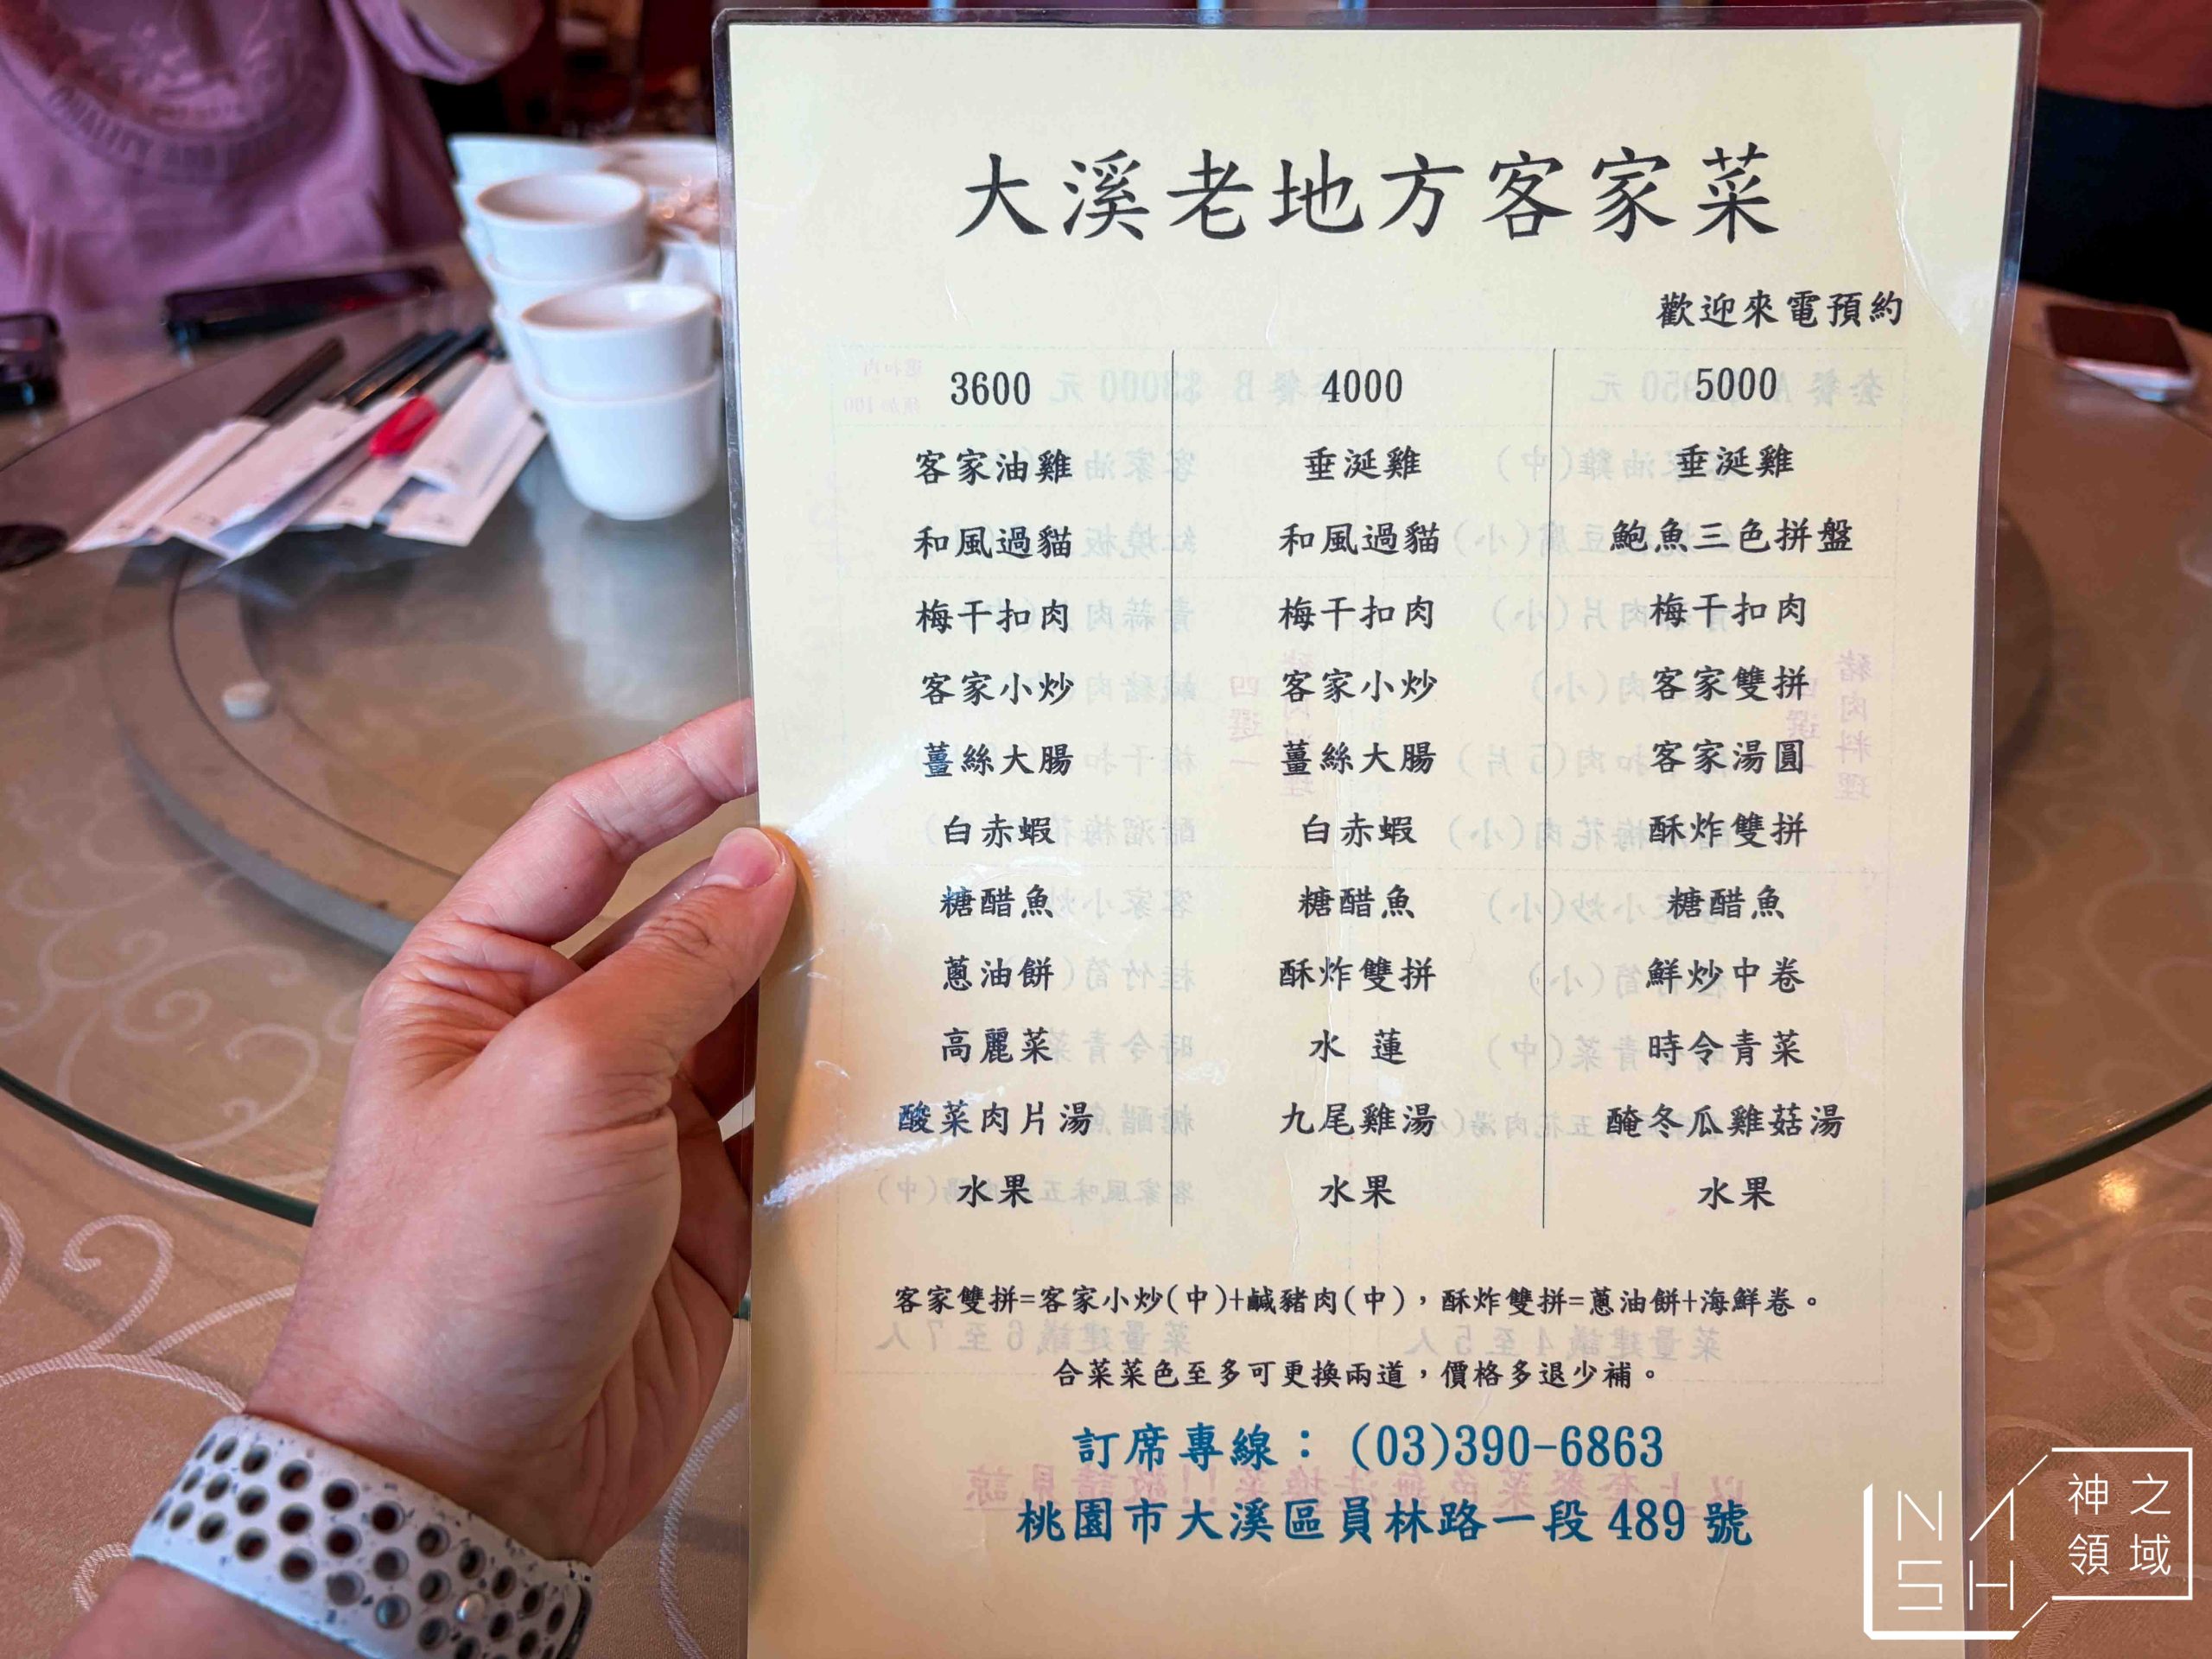 大溪老地方客家菜
歡迎來電預約
3600 4000 5000
客家油雞 垂涎雞 垂涎雞
和風過貓 和風過貓 鮑魚三色拼盤
梅干扣肉 梅干扣肉 梅干扣肉
客家小炒 客家小炒 客家雙拼
薑絲大腸 薑絲大腸 客家湯圓
白赤蝦 白赤蝦 酥炸雙拼
糖醋魚 糖醋魚 糖醋魚
蔥油餅 酥炸雙拼 鮮炒中卷
高麗菜 水 蓮 時令青菜
酸菜肉片湯 九尾雞湯 醃冬瓜雞菇湯
水果 水果 水果
客家雙拼=客家小炒(中)+鹹豬肉(中)，酥炸雙拼=蔥油餅+海鮮卷。
合菜菜色至多可更換兩道，價格多退少補。
訂席專線： (03)390-6863
桃園市大溪區員林路一段 489 號
NASH
神之
領域